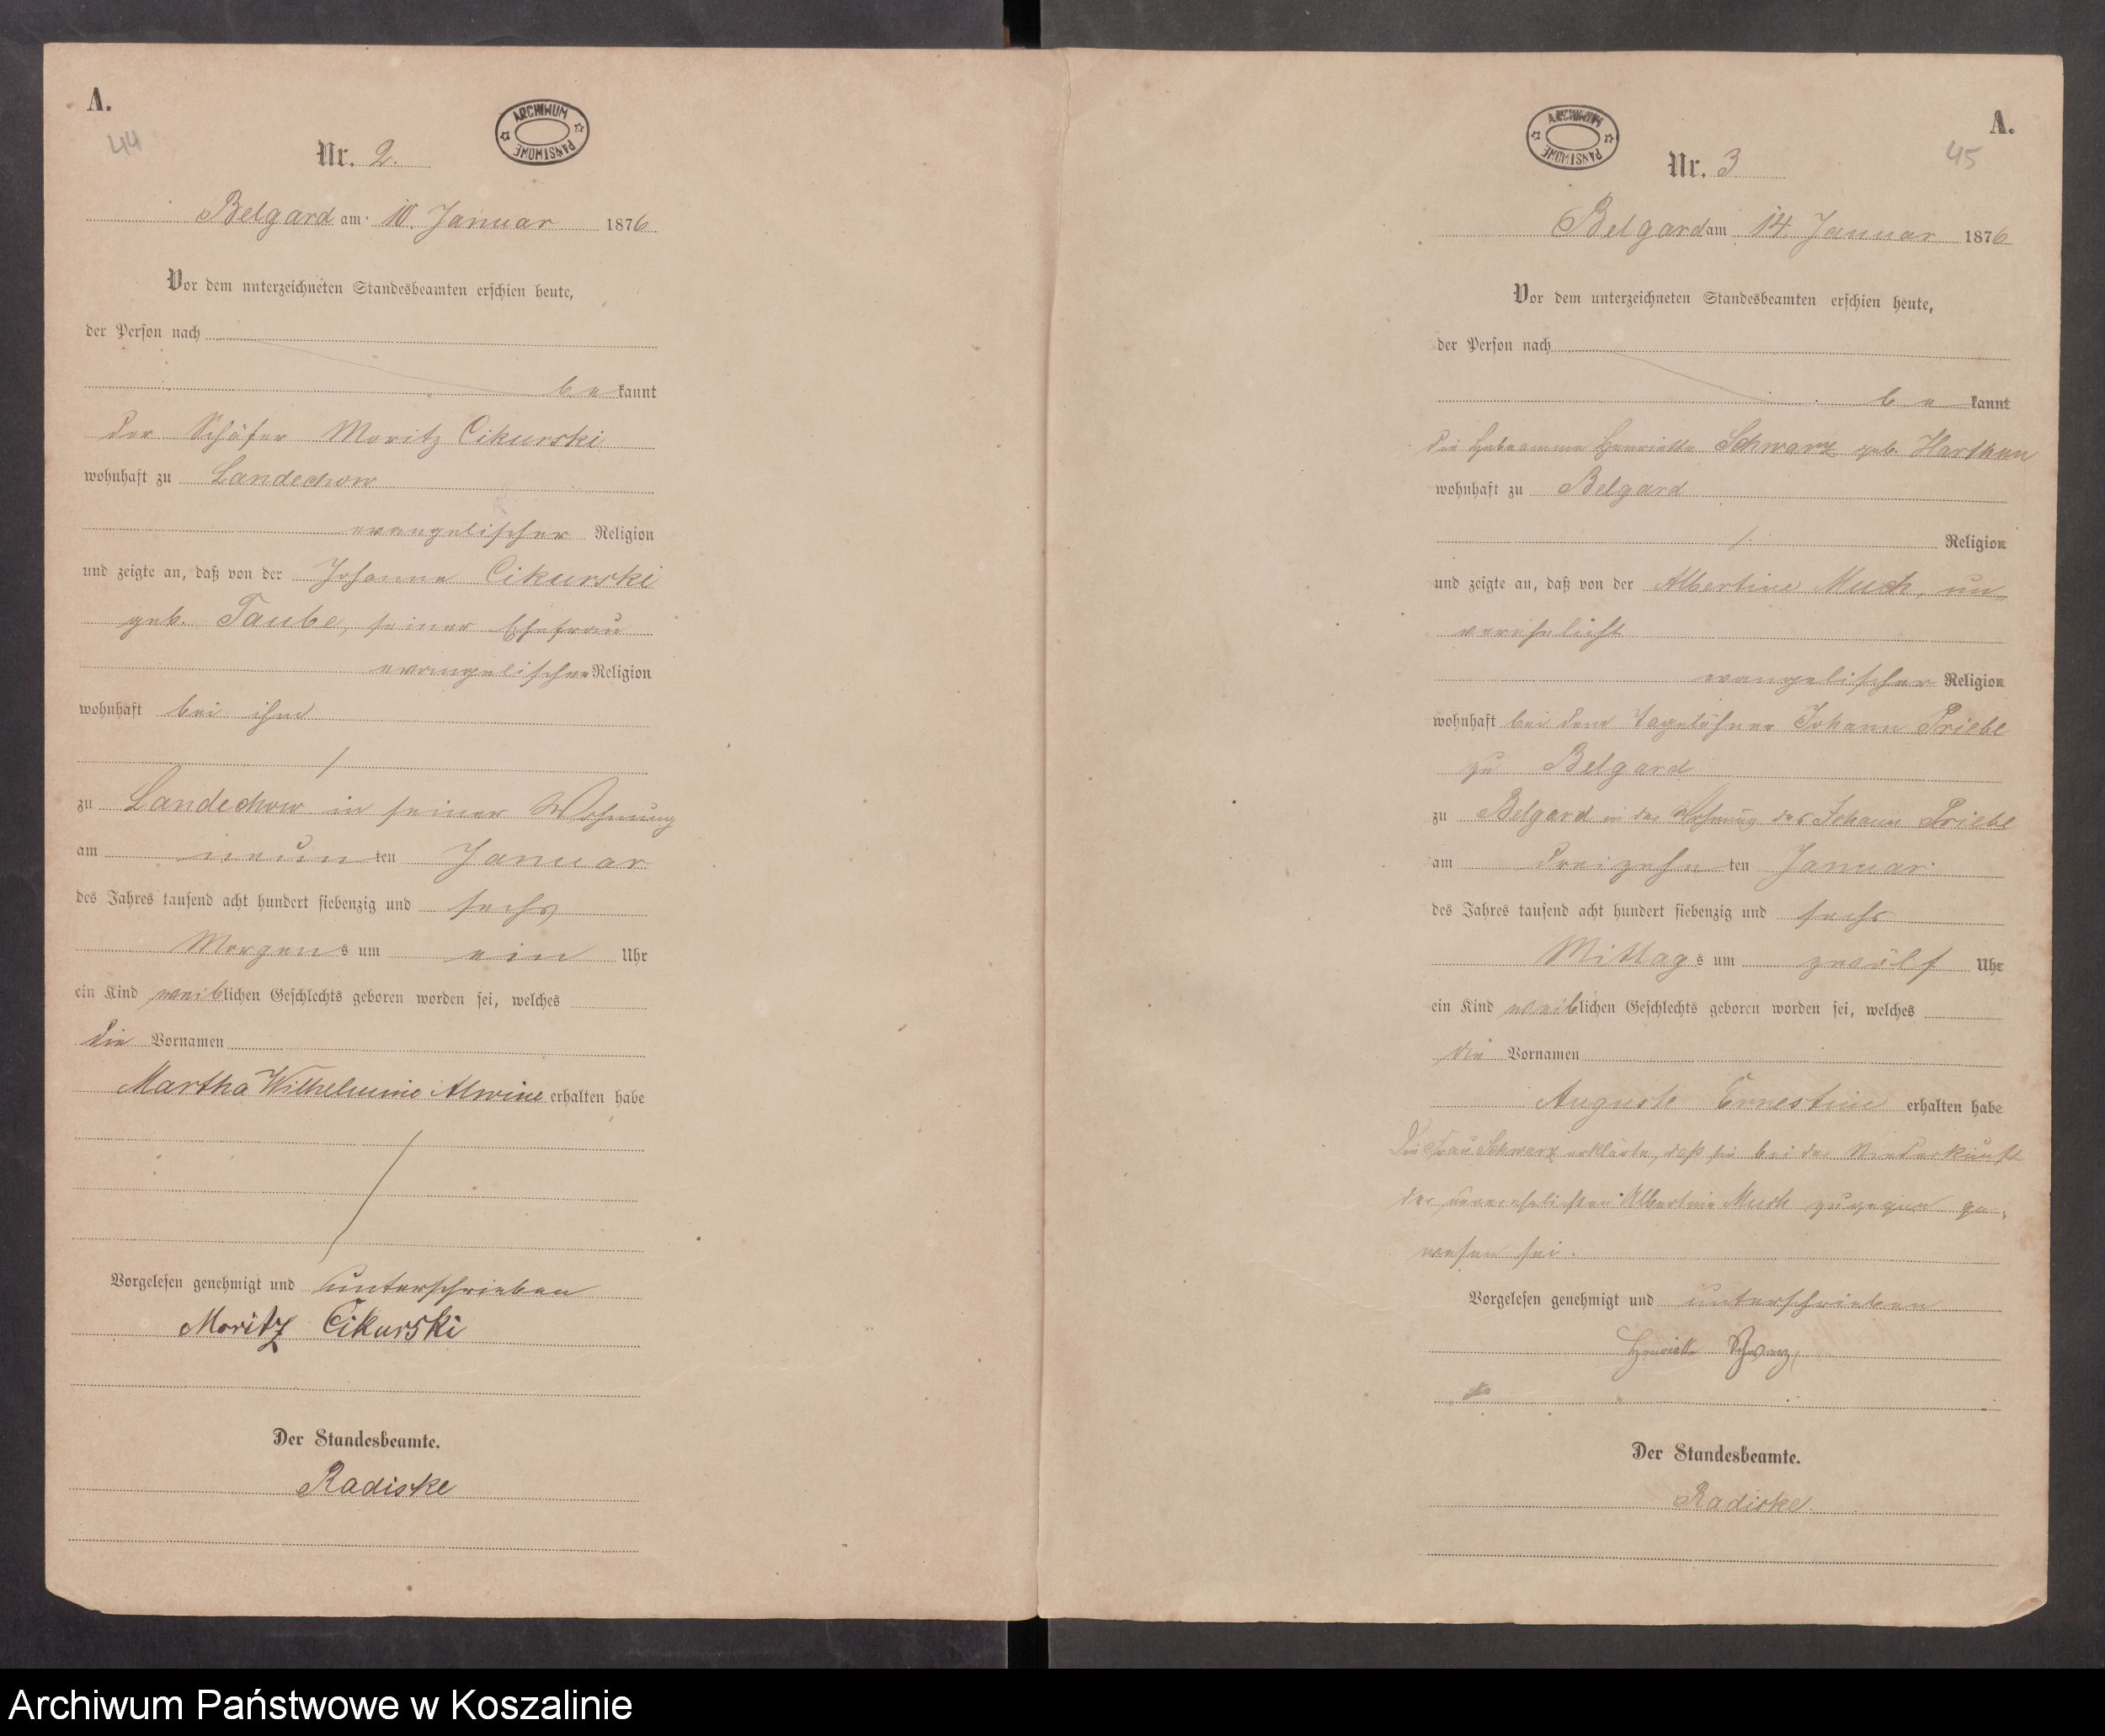 A.
44
ARCHIWUM PAŃSTWOWE
Nr. 2.
Belgard am 10. Januar 1876
Vor dem unterzeichneten Standesbeamten erschien heute,
der Person nach
be kannt
der Schäfer Moritz Cikurski
wohnhaft zu Landechow
evangelischer Religion
und zeigte an, daß von der Johanne Cikurski
geb. Taube, seiner Ehefrau
evangelischer Religion
wohnhaft bei ihm
zu Landechow in seiner Wohnung
am neun ten Januar
des Jahres tausend acht hundert siebenzig und sechs
Morgens um ein Uhr
ein Kind weiblichen Geschlechts geboren worden sei, welches
die Vornamen
Martha Wilhelmine Alwine erhalten habe
Vorgelesen genehmigt und unterschrieben
Moritz Cikurski
Der Standesbeamte.
Radiske
A.
45
ARCHIWUM PAŃSTWOWE
Nr. 3
Belgard am 14. Januar 1876
Vor dem unterzeichneten Standesbeamten erschien heute,
der Person nach
be kannt
die Hebeamme Henriette Schwarz geb. Harthun
wohnhaft zu Belgard
Religion
und zeigte an, daß von der Albertine Much, un
verehelicht
evangelischer Religion
wohnhaft bei dem Tagelöhner Johann Priebe
zu Belgard
zu Belgard in der Wohnung des Johann Priebe
am dreizehn ten Januar
des Jahres tausend acht hundert siebenzig und sechs
Mittags um zwölf Uhr
ein Kind weiblichen Geschlechts geboren worden sei, welches
die Vornamen
Auguste Ernestine erhalten habe
Die Frau Schwarz erklärte, daß sie bei der Niederkunft
der unverehelichten Albertine Much zugegen ge-
wesen sei.
Vorgelesen genehmigt und unterschrieben
Henriette Schwarz
Der Standesbeamte.
Radiske
Archiwum Państwowe w Koszalinie